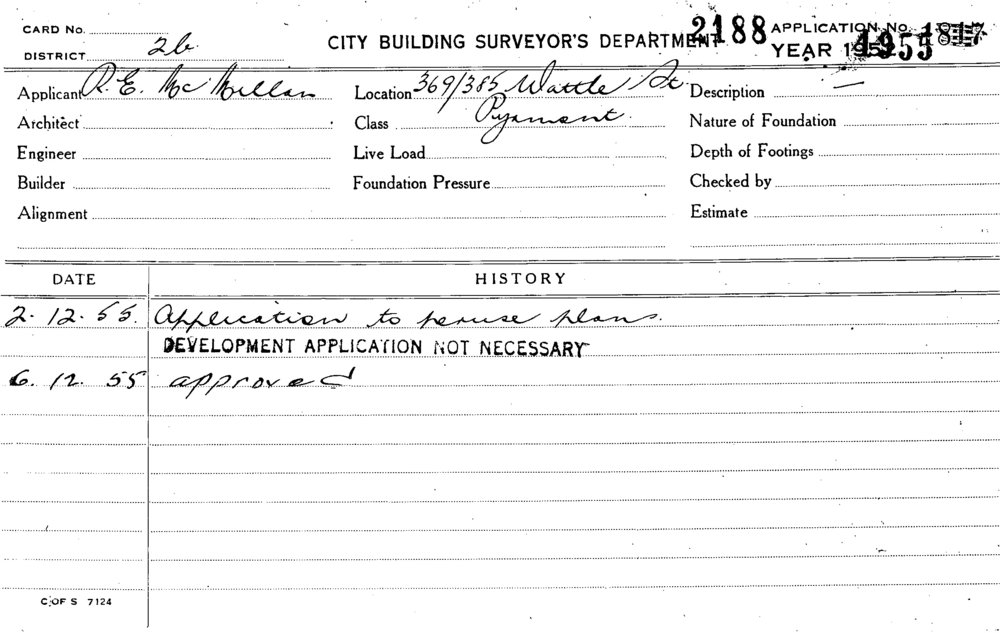 CARD No.
DISTRICT 2b.
CITY BUILDING SURVEYOR'S DEPARTMENT
2188 APPLICATION No.
YEAR 1955
Applicant R. E. McMillan Location 369/385 Wattle St Description —
Architect Class Pyrmont. Nature of Foundation
Engineer Live Load Depth of Footings
Builder Foundation Pressure Checked by
Alignment Estimate
DATE HISTORY
2. 12. 55. Application to peruse plans.
DEVELOPMENT APPLICATION NOT NECESSARY
6. 12. 55 approved
C OF S 7124